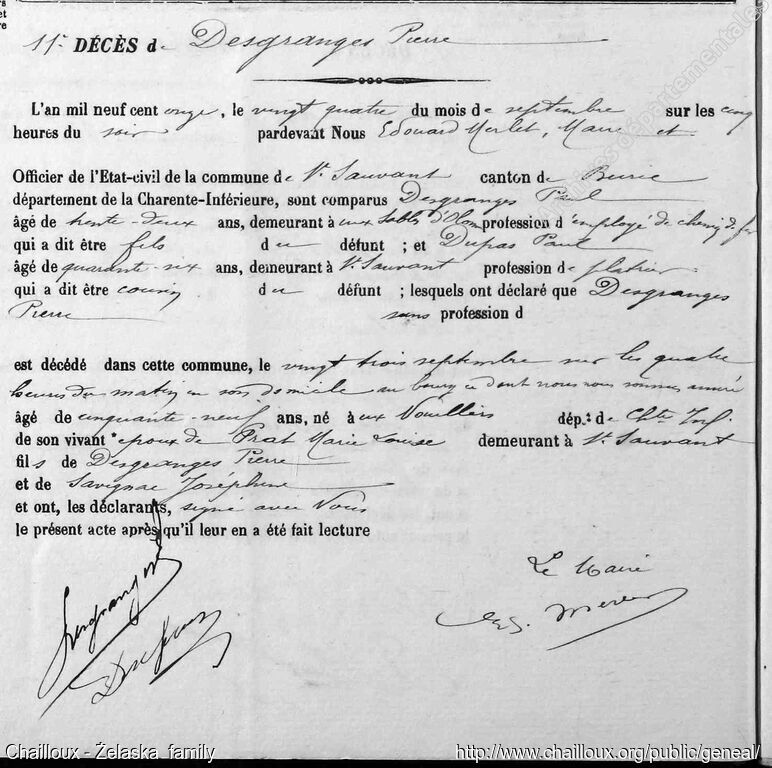 11e DÉCÈS de Desgranges Pierre
L'an mil neuf cent onze, le vingt quatre du mois de septembre sur les cinq
heures du soir pardevant Nous Edouard Merlet, Maire et
Officier de l'Etat-civil de la commune de St Sauvant canton de Burie
département de la Charente-Inférieure, sont comparus Desgranges Paul
âgé de trente-deux ans, demeurant à aux Sables d'Olon profession d'employé de chemin de fer
qui a dit être fils du défunt ; et Dupas Paul
âgé de quarante-six ans, demeurant à St Sauvant profession de platrier
qui a dit être cousin du défunt ; lesquels ont déclaré que Desgranges
Pierre sans profession d
est décédé dans cette commune, le vingt trois septembre sur les quatre
heures du matin en son domicile au bourg ce dont nous nous sommes assuré
âgé de cinquante-neuf ans, né à aux Nouillers dépt de Chte Inf.
de son vivant époux de Prat Marie Louise demeurant à St Sauvant
fils de Desgranges Pierre
et de Savignac Joséphine
et ont, les déclarants, signé avec Nous
le présent acte après qu'il leur en a été fait lecture
Le Maire
Desgranges
Archives départementales
Chailloux - Żelaska family
http://www.chailloux.org/public/geneal/